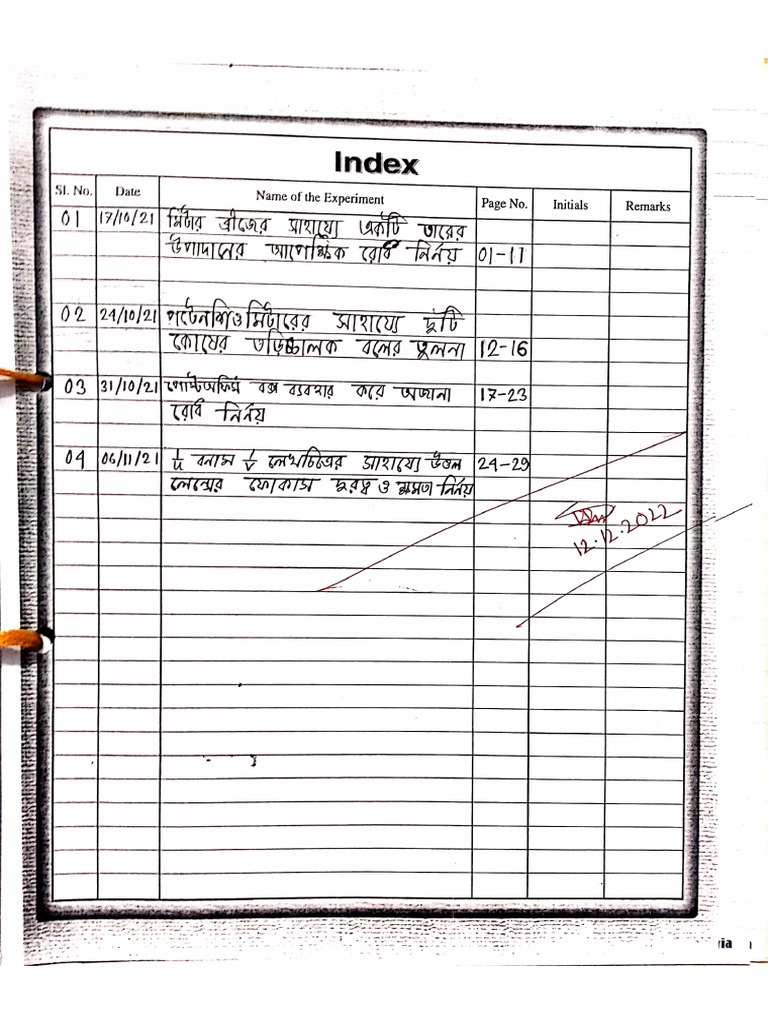 Index
Sl. No. Date Name of the Experiment Page No. Initials Remarks
01 17/10/21 মিটার ব্রীজের সাহায্যে একটি তারের
উপাদানের আপেক্ষিক রোধ নির্নয় 01-11
02 24/10/21 পটেনশিওমিটারের সাহায্যে দুটি
কোষের তড়িচ্চালক বলের তুলনা 12-16
03 31/10/21 পোস্টঅফিস বক্স ব্যবহার করে অজানা 17-23
রোধ নির্নয়
04 06/11/21 1/u বনাম 1/v লেখচিত্রের সাহায্যে উত্তল 24-29
লেন্সের ফোকাস দুরত্ব ও ক্ষমতা নির্নয়
12.12.2022